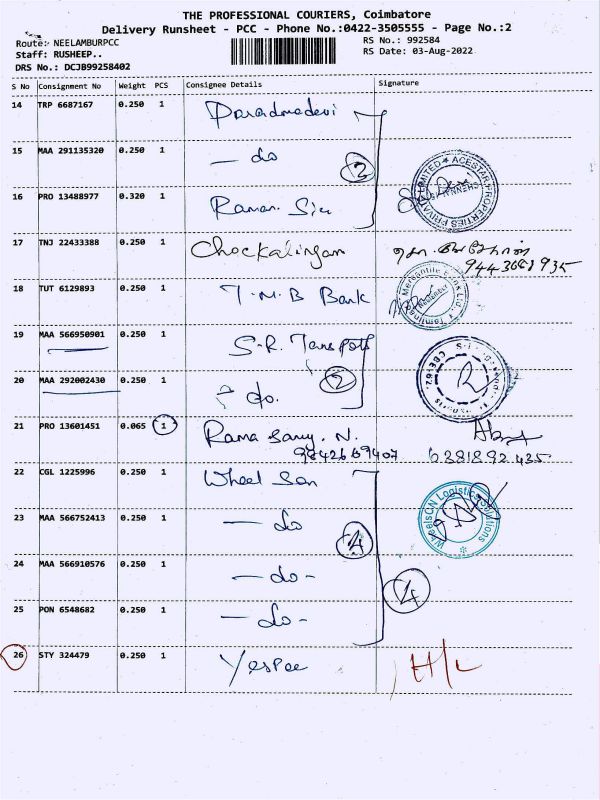 THE PROFESSIONAL COURIERS, Coimbatore
Delivery Runsheet - PCC - Phone No.:0422-3505555 - Page No.:2
Route: NEELAMBURPCC
RS No.: 992584
Staff: RUSHEEP..
RS Date: 03-Aug-2022
DRS No.: DCJB99258402
S No Consignment No Weight PCS Consignee Details Signature
14 TRP 6687167 0.250 1
15 MAA 291135320 0.250 1 - do
16 PRO 13488977 0.320 1 Raman
17 TNJ 22433388 0.250 1 Chockalingam
9443681935
18 TUT 6129893 0.250 1 T.M.B Bank
19 MAA 566950901 0.250 1 S.R. Tanspott
20 MAA 292002430 0.250 1 - do. 2
21 PRO 13601451 0.065 1 Rama Samy. N.
9842669407 6381892435
22 CGL 1225996 0.250 1 Wheel Son
WheelsCN Logistics Solutions
23 MAA 566752413 0.250 1 - do
4
24 MAA 566910576 0.250 1 - do -
4
25 PON 6548682 0.250 1 - do -
26 STY 324479 0.250 1 Yespee H/L